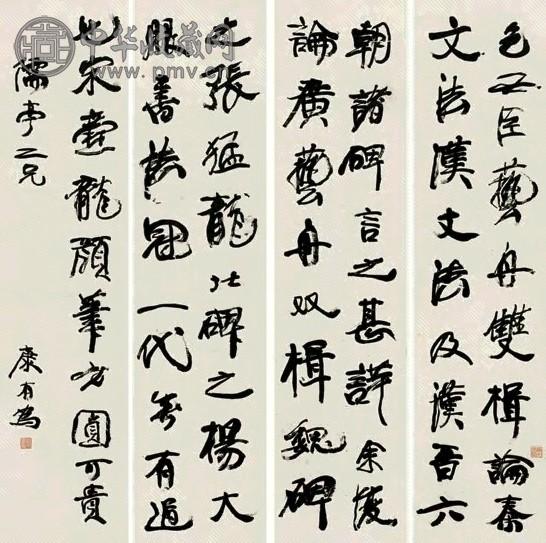 包丞臣藝舟雙楫論秦
文法漢文法及漢晉六
朝諸碑言之甚詳余復
論廣藝舟双楫魏碑
之張猛龍北碑之楊大
眼書法冠一代矣有過
世宋爨龍顏筆方圓可貴
儒亭二兄
康有為
中华收藏网
www.pmv.cn